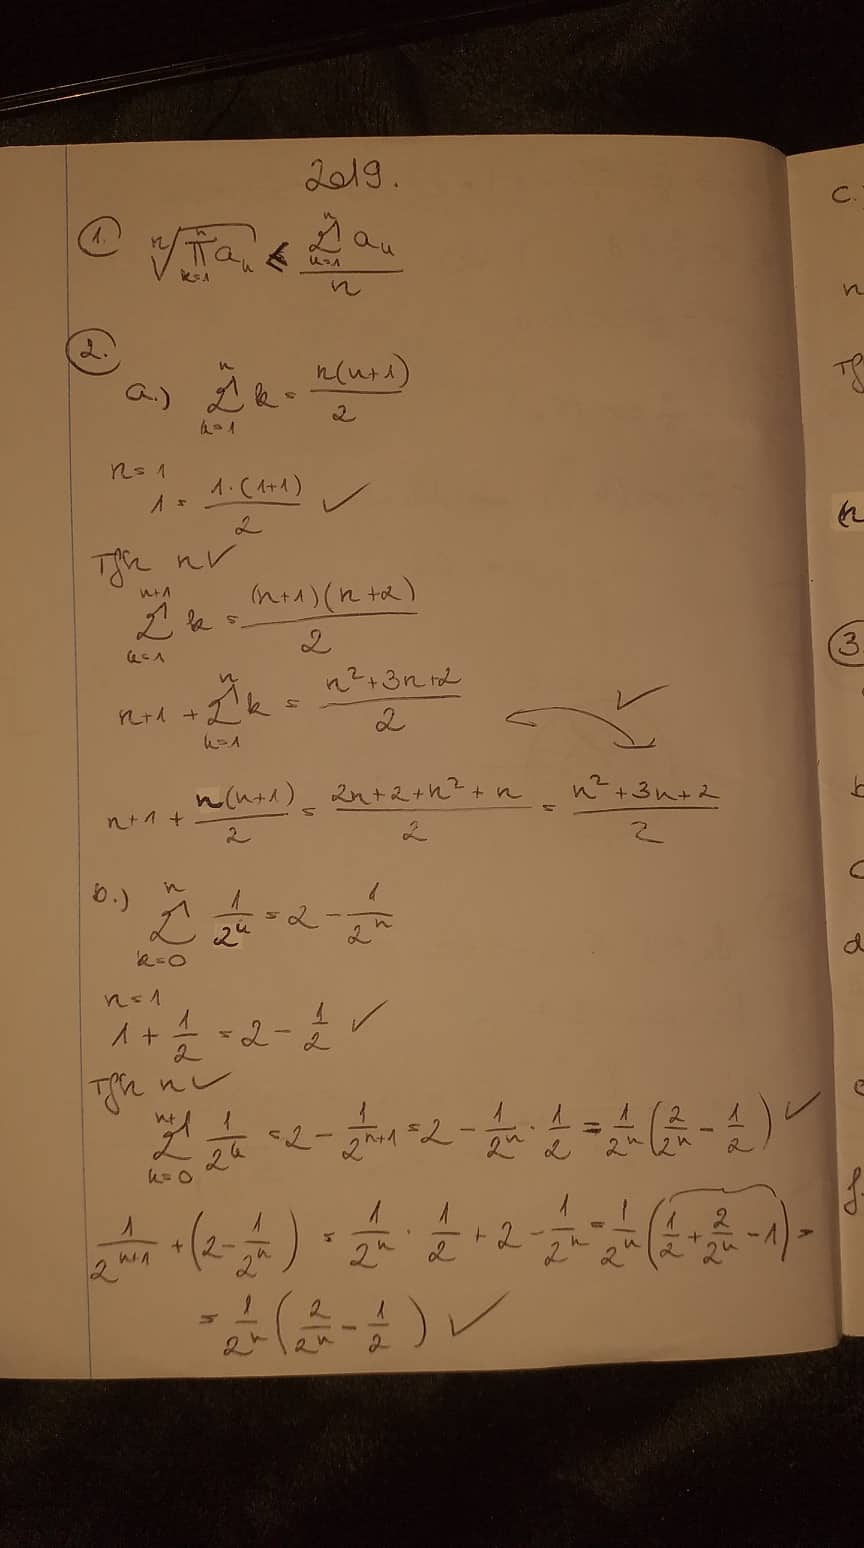 2019.
1. ⁿ√(∏_{k=1}^{n} a_k) ≤ (∑_{k=1}^{n} a_k)/n
2.
a.) ∑_{k=1}^{n} k = n(n+1)/2
n=1
1 = 1·(1+1)/2 ✓
Tfh n✓
∑_{k=1}^{n+1} k = (n+1)(n+2)/2
n+1 + ∑_{k=1}^{n} k = (n²+3n+2)/2 ✓
n+1 + n(n+1)/2 = (2n+2+n²+n)/2 = (n²+3n+2)/2
b.) ∑_{k=0}^{n} 1/2^k = 2 - 1/2^n
n=1
1 + 1/2 = 2 - 1/2 ✓
Tfh n✓
∑_{k=0}^{n+1} 1/2^k = 2 - 1/2^{n+1} = 2 - 1/2^n · 1/2 = 1/2^n (2/2^n - 1/2) ✓
1/2^{n+1} + (2 - 1/2^n) = 1/2^n · 1/2 + 2 - 1/2^n = 1/2^n (1/2 + 2/2^n - 1) =
= 1/2^n (2/2^n - 1/2) ✓
c.
n
Tf
(n
3
d
e
f.